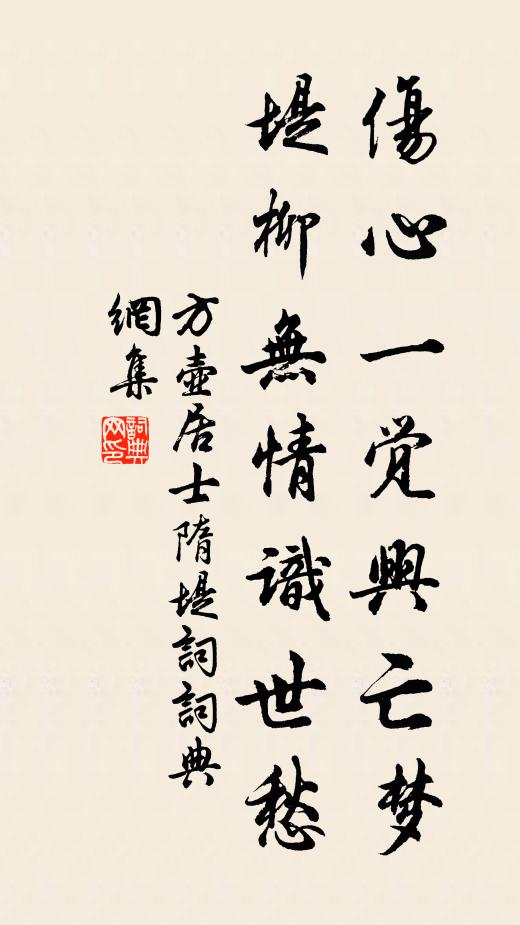 傷心一觉興亡梦
堤柳無情識世愁
方壺居士隋堤詞詞典
網集
詞典
网印